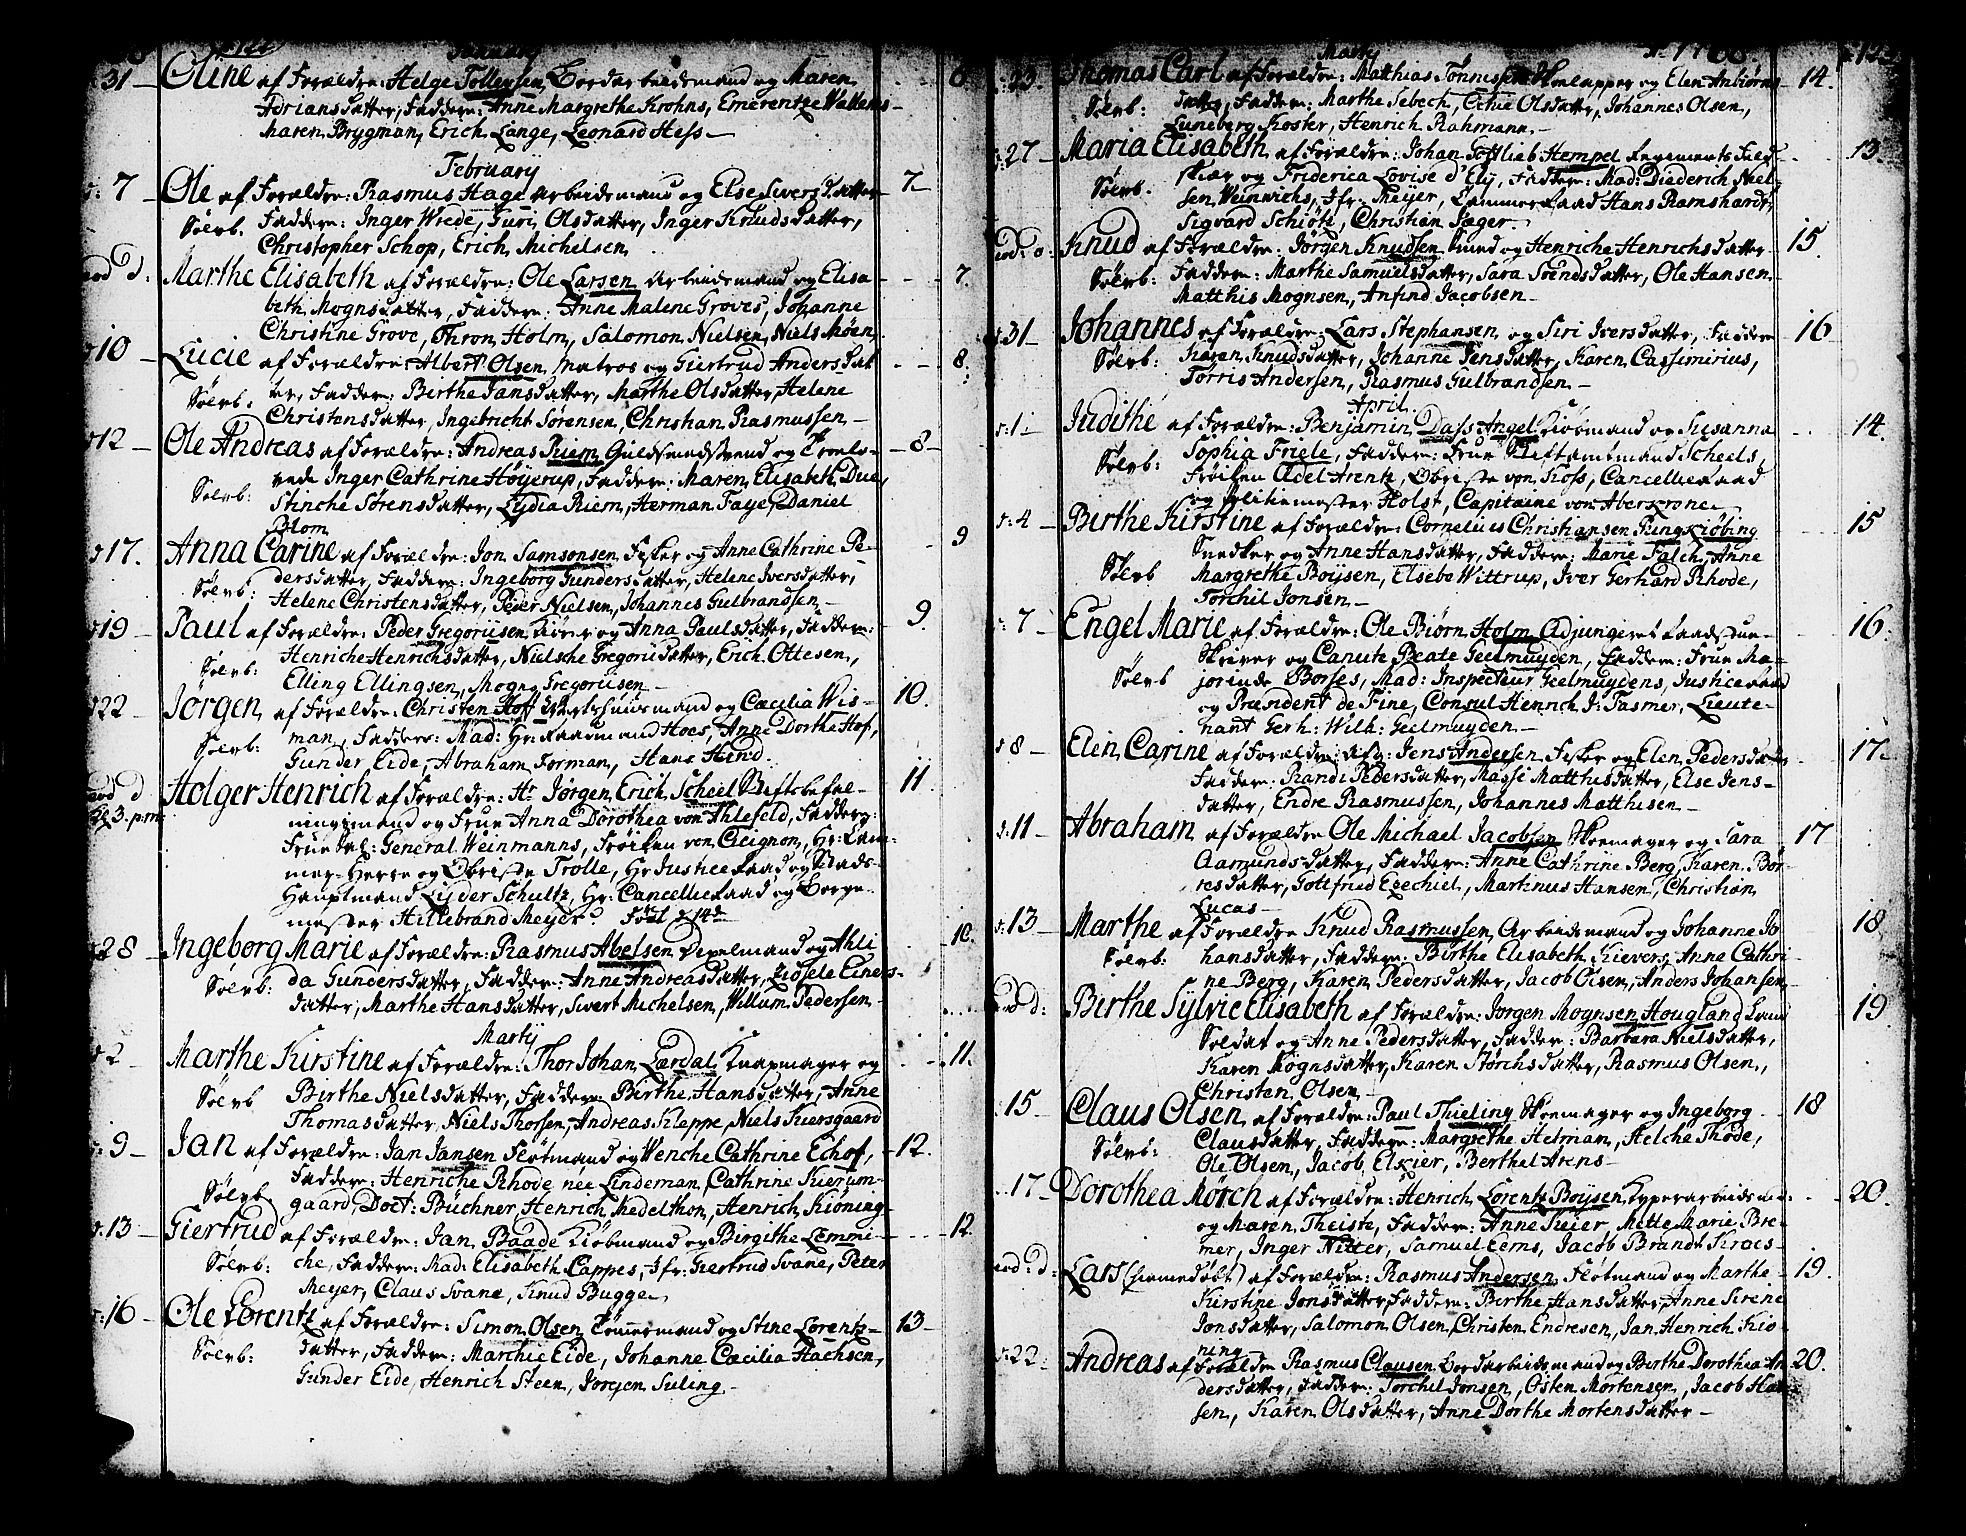 January
31 – Oline af Forældre: Helge Tollevsen Bordarbeidsmand og Maren 8
Adriansdatter, Faddere: Anne Margrethe Krohns, Emerentze
Maren Brygman, Erich Lange, Leonard Hess –
February
7 – Ole af Forældre: Rasmus Hage Arbeidsmand og Else Siversdatter 7
Sölvb. Faddere: Inger Wrede, Guri Olsdatter, Inger Knudsdatter,
Christopher Schop, Erich Michelsen
eod d. Marthe Elisabeth af Forældre: Ole Larsen Arbeidsmand og Elisa 7.
beth Mognsdatter, Faddere: Anne Malene Groves, Johanne
Christine Grove, Thron Holm, Salomon Nielsen, Niels Möen
10 – Lucie af Forældre: Albert Olsen Matros og Giertrud Andersdat 8
Sölvb. er, Faddere: Birthe Jansdatter, Marthe Olsdatter, Helene
Christensdatter, Ingebricht Sörensen, Christian Rasmussen –
12 – Ole Andreas af Forældre: Andreas Riem Guldsmedsvend og Trolo– 8
Sölvb: vede Inger Cathrine Höyerup, Faddere: Maren Elisabeth Due,
Stinche Sörensdatter, Lydia Riem, Herman Faye, Daniel
Blom
17. Anna Carine af Forældre: Jon Samsonsen Fisker og Anne Cathrine Pe– 9
Sölvb: dersdatter, Faddere: Ingeborg Gundersdatter, Helene Iversdatter,
Helene Christensdatter, Peder Nielsen, Johannes Gulbrandsen –
19 – Paul af Forældre: Peder Gregoriisen og Anna Paulsdatter, Faddere: 9.
Sölvb: Henriche Henrichsdatter, Nielsche Gregoriidatter, Erich Ottesen,
Elling Ellingsen, Mogns Gregoriisen –
22 – Jörgen af Forældre: Christen Hoff Vertshuusmand og Cæcilia Wis– 10.
Sölvb: man, Faddere: Mad: Hr: Raadmand Hoes, Anne Dorthe Hof,
Gunder Eide, Abraham Forman, Hans Hind.
eod d Holger Henrich af Forældre: Hr Jörgen Erich Scheel Stiftsbefal– 11
3. p.m. ningsmand og Frue Anna Dorothea von Ahlefeld, Faddere:
Frue Sal: General Weinmanns, Fröiken von Cicignon, Hr: Kam–
mer–Herre og Obriste Trolle, Hr Justice Raad og Stads–
Hauptmand Lyder Schultz, Hr: Cancellie Raad og Borge–
mester Hillebrand Meyer. Föd d 14de
28 – Ingeborg Marie af Forældre: Rasmus Abelsen Depelmand og Ahli 10.
Sölvb: da Gundersdatter, Faddere: Anne Andreasdatter, Lidsele Einers–
datter, Marthe Hansdatter, Sivert Michelsen, Willum Pedersen –
Martij
2 – Marthe Kirstine af Forældre: Thor Johan Lærdal Knapmager og 11.
Sölvb Birthe Nielsdatter, Faddere: Birthe Hansdatter, Anne
Thomasdatter, Niels Thorsen, Andreas Klappe, Niels Kiersgaard
9 – Jan af Forældre: Jan Jansen Flötmand og Wenche Cathrine Echof, 12.
Sölvb. Faddere: Henriche Rhode née Lindeman, Cathrine Kierum–
gaard, Doct: Büchner, Henrich Medelthon, Henrich Kiöning –
13 – Giertrud af Forældre: Jan Baade Kiöbmand og Birgithe Lemmi– 12.
Sölvb: che, Faddere: Mad: Elisabeth Cappes, Jfr: Giertrud Svane, Peter
Meyer, Claus Svane, Knud Bugge
16 – Ole Lorentz af Forældre: Simon Olsen Tömmermand og Stine Lorentz– 13 –
Sölvb: datter, Faddere: Marchie Eide, Johanne Cæcilia Hachsen,
Gunder Eide, Henrich Steen, Jörgen Suling –
Martij
1768
23. Thomas Carl af Forældre: Matthias Tönnisen Skoelapper og Elen Anbiörns 14.
Sölvb: datter, Faddere: Marthe Sebech, Olsdatter, Johannes Olsen,
Luneberg Koster, Henrich Rahmann –
27 – Maria Elisabeth af Forældre: Johan Gottlieb Hempel Regiments Feld– 13.
Sölvb. skiær og Friderica Lovise d'Ely, Faddere: Mad: Diederich Niel–
sen Weinwichs, Jfr: Meyer, Kammerraad Hans Ramshardt,
Sigvard Schiötz, Christian Jæger.
eod: d. Knud af Forældre: Jörgen Knudsen Smed og Henriche Henrichsdatter 15
Sölvb: Faddere: Marthe Samuelsdatter, Sara Svendsdatter, Ole Hansen
Matthis Mognsen, Anfind Jacobsen –
31 – Johannes af Forældre: Lars Stephansen og Siri Iversdatter, Faddere 16
Sölvb: Karen Knudsdatter, Johanne Jensdatter, Karen Cassimirius,
Törris Andersen, Rasmus Gulbrandsen –
April.
1 – Judithe af Forældre: Benjamin Dass Angel Kiöbmand og Susanna 14.
Sölvb: Sophia Friele, Faddere: Frue Stiftamtmand Scheels,
Fröiken Adel Arentz, Obriste von Koss, Cancellieraad
og Politiemester Holst, Capitaine von Aberkrone
4 – Birthe Kirstine af Forældre: Cornelius Christiansen Ringkiöbing 15
Sölvb Snedker og Anne Hansdatter, Faddere: Marie Falch, Anne
Margrethe Boysen, Elsebe Wittrup, Iver Gerhard Rhode,
Torchil Jonsen –
7 – Engel Marie af Forældre: Ole Biörn Holm Adjungeret Raadstue– 16.
Sölvb Skriver og Canute Beate Geelmuyden, Faddere: Frue Ma–
jorinde Borses, Mad: Inspecteur Geelmuydens, Justiceraad
og Præsident de Fine, Consul Henrich J: Fasmer, Lieute–
nant Gerh: Wilh: Geelmuyden –
8 – Elen Carine af Forældre: Jens Andersen Fisker og Elen Pedersdatter 17.
Faddere: Randi Pedersdatter, Massi Matthisdatter, Else Jens–
datter, Endre Rasmussen, Johannes Matthisen –
11 – Abraham af Forældre Ole Michael Jacobsen Skoemager og Sara 17
Aamundsdatter, Faddere: Anne Cathrine Berg, Karen Bör–
resdatter, Gottfrud Ezechiel, Martinus Hansen, Christian
Lucas –
13 – Marthe af Forældre Knud Rasmussen Arbeidsmand og Johanne Jo 18.
Sölvb: hansdatter, Faddere: Birthe Elisabeth Kievers, Anne Cathri–
ne Berg, Karen Pedersdatter, Jacob Olsen, Anders Johansen
eod d: Birthe Sylvie Elisabeth af Forældre: Jörgen Mognsen Hougland Land 19.
Soldat og Anne Pedersdatter, Faddere: Barbara Nielsdatter,
Karen Mognsdatter, Karen Störchsdatter, Rasmus Olsen,
Christen Olsen
15 – Claus Olsen af Forældre: Paul Thieling Skoemager og Ingeborg 18
Sölvb: Clausdatter, Faddere: Margrethe Helman, Helche Thode,
Ole Olsen, Jacob Elskier, Berthel Arens –
17 – Dorothea Mörch af Forældre: Henrich Lorentz Boysen Kyperarbeidsm: 20.
og Maren Theiste, Faddere: Anne Meier, Mette Marie Bre–
mer, Inger Nitter, Samuel Eems, Jacob Brandt Kroes –
eod: d: Lars (hiemedöbt) af Forældre: Rasmus Andersen Flötmand og Marthe 19.
Kirstine Jonsdatter, Faddere: Birthe Hansdatter, Anne Sirene
Jonsdatter, Salomon Olsen, Christen Endresen, Jan Henrich Kiö–
ning –
22 – Andreas af Forældre Rasmus Clausen Bordarbeidsmand og Birthe Dorothea An 20.
dersdatter, Faddere: Torchil Jonsen, Osten Mortensen, Jacob Han
sen, Karen Olsdatter, Anne Dorthe Mortensdatter –